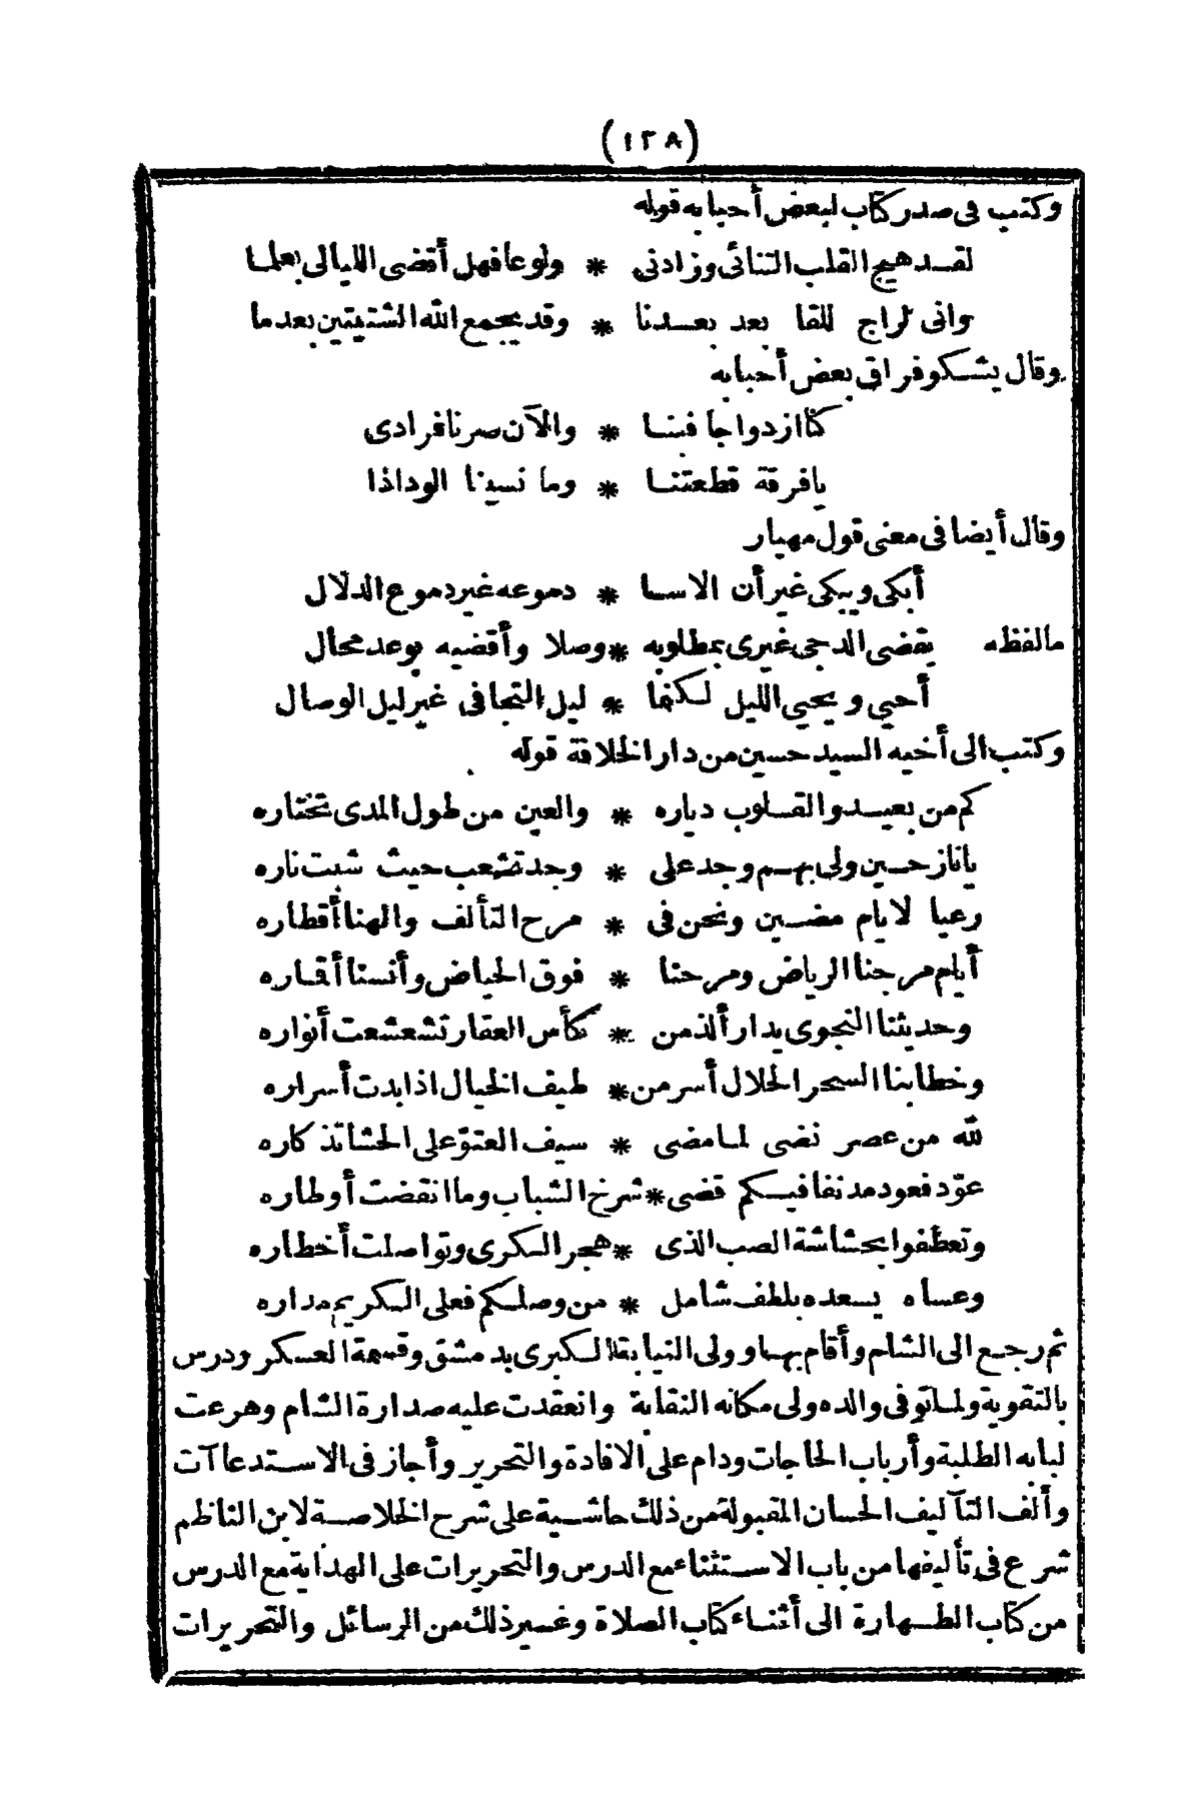 (١٣٨)
وكتب فى صدر كتاب لبعض أحبابه قوله
لقد هيج القلب التنائى وزادنى * ولوعا فهل أقضى الليالى بعلما
وانى لراج للقا بعد بعدنا * وقد يجمع الله الشتيتين بعدما
وقال يشكو فراق بعض أحبابه
كنا ازدواجا فبنا * والآن صرنا فرادى
يا فرقة قطعتنا * وما نسينا الودادا
وقال أيضا فى معنى قول مهيار
أبكى ويبكى غير أن الاسا * دموعه غير دموع الدلال
مالفظه يقضى الدجى غيرى بمطلوبه * وصلا وأقضيه بوعد محال
أحيي ويحيي الليل لكنها * ليل التجافى غير ليل الوصال
وكتب الى أخيه السيد حسين من دار الخلافة قوله
كم من بعيد والقلوب دياره * والعين من طول المدى تختاره
يا نازحين ولى بهم وجد على * وجد تشعب حيث شبت ناره
رعيا لايام مضين ونحن فى * مرح التألف والهنا أقطاره
أيام مرجنا الرياض ومرحنا * فوق الحياض وأنسنا أقماره
وحديثنا النجوى يدار ألذ من * كأس العقار تشعشعت أنواره
وخطابنا السحر الحلال أسر من * طيف الخيال اذا بدت أسراره
لله من عصر نضى لما مضى * سيف العتو على الحشا تذكاره
عود فعود مدنفا فيكم قضى * شرخ الشباب وما انقضت أوطاره
وتعطفوا بحشاشة الصب الذى * هجر الكرى وتواصلت أخطاره
وعساه يسعده بلطف شامل * من وصلكم فعلى الكريم مداره
ثم رجع الى الشام وأقام بها وولى النيابة الكبرى بدمشق وقسمة العسكر ودرس
بالتقوية ولما توفى والده ولى مكانه النقابة وانعقدت عليه صدارة الشام وهرعت
لبابه الطلبة وأرباب الحاجات ودام على الافادة والتحرير وأجاز فى الاستدعاآت
وألف التآليف الحسان المقبولة من ذلك حاشية على شرح الخلاصة لابن الناظم
شرع فى تأليفها من باب الاستثناء مع الدرس والتحريرات على الهداية مع الدرس
من كتاب الطهارة الى أثناء كتاب الصلاة وغير ذلك من الرسائل والتحريرات